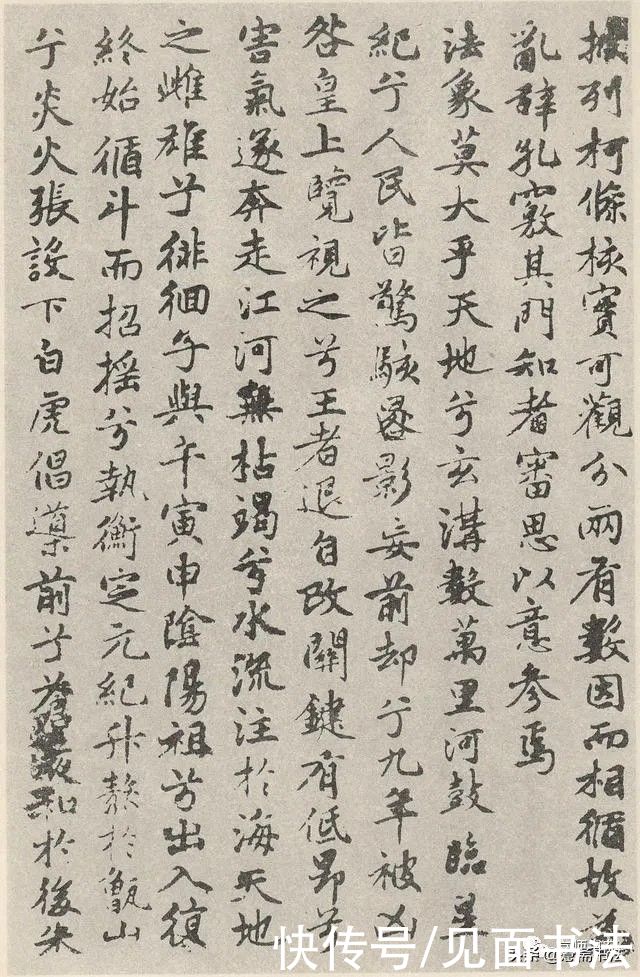 披列柯條核實可觀分兩有數因而相循故為
亂辭孔竅其門知者審思以意參焉
法象莫大乎天地兮玄溝數萬里河鼓臨星
紀兮人民皆驚駭晷影妄前却兮九年被凶
咎皇上覽視之兮王者退自改關鍵有低昂兮
害氣遂奔走江河無枯竭兮水流注於海天地
之雌雄兮徘徊子與午寅申陰陽祖兮出入復
終始循斗而招摇兮執衡定元紀升熬於甑山
兮炎火張設下白虎倡導前兮蒼液和於後朱
快传号/见面书法